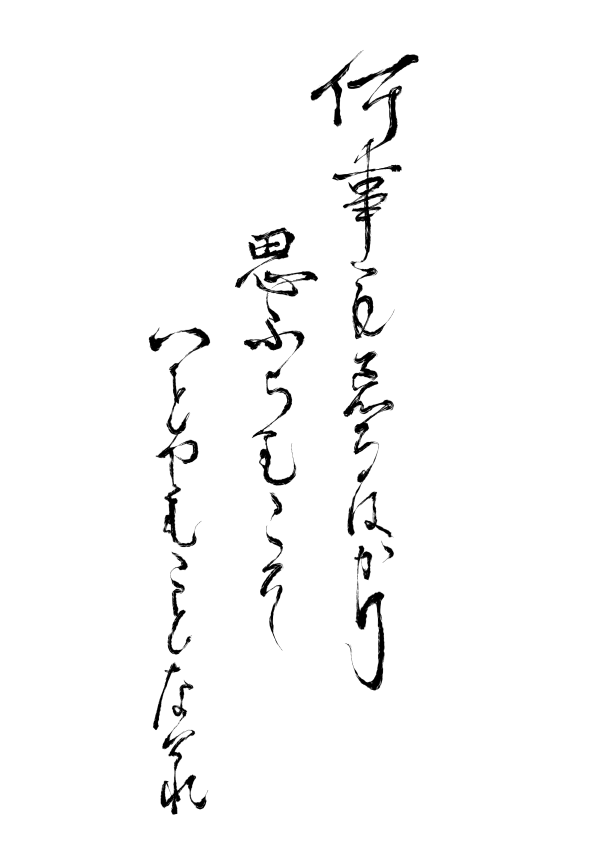 何事も忘るはかり
思ふらむこそ
いとやむことなけれ